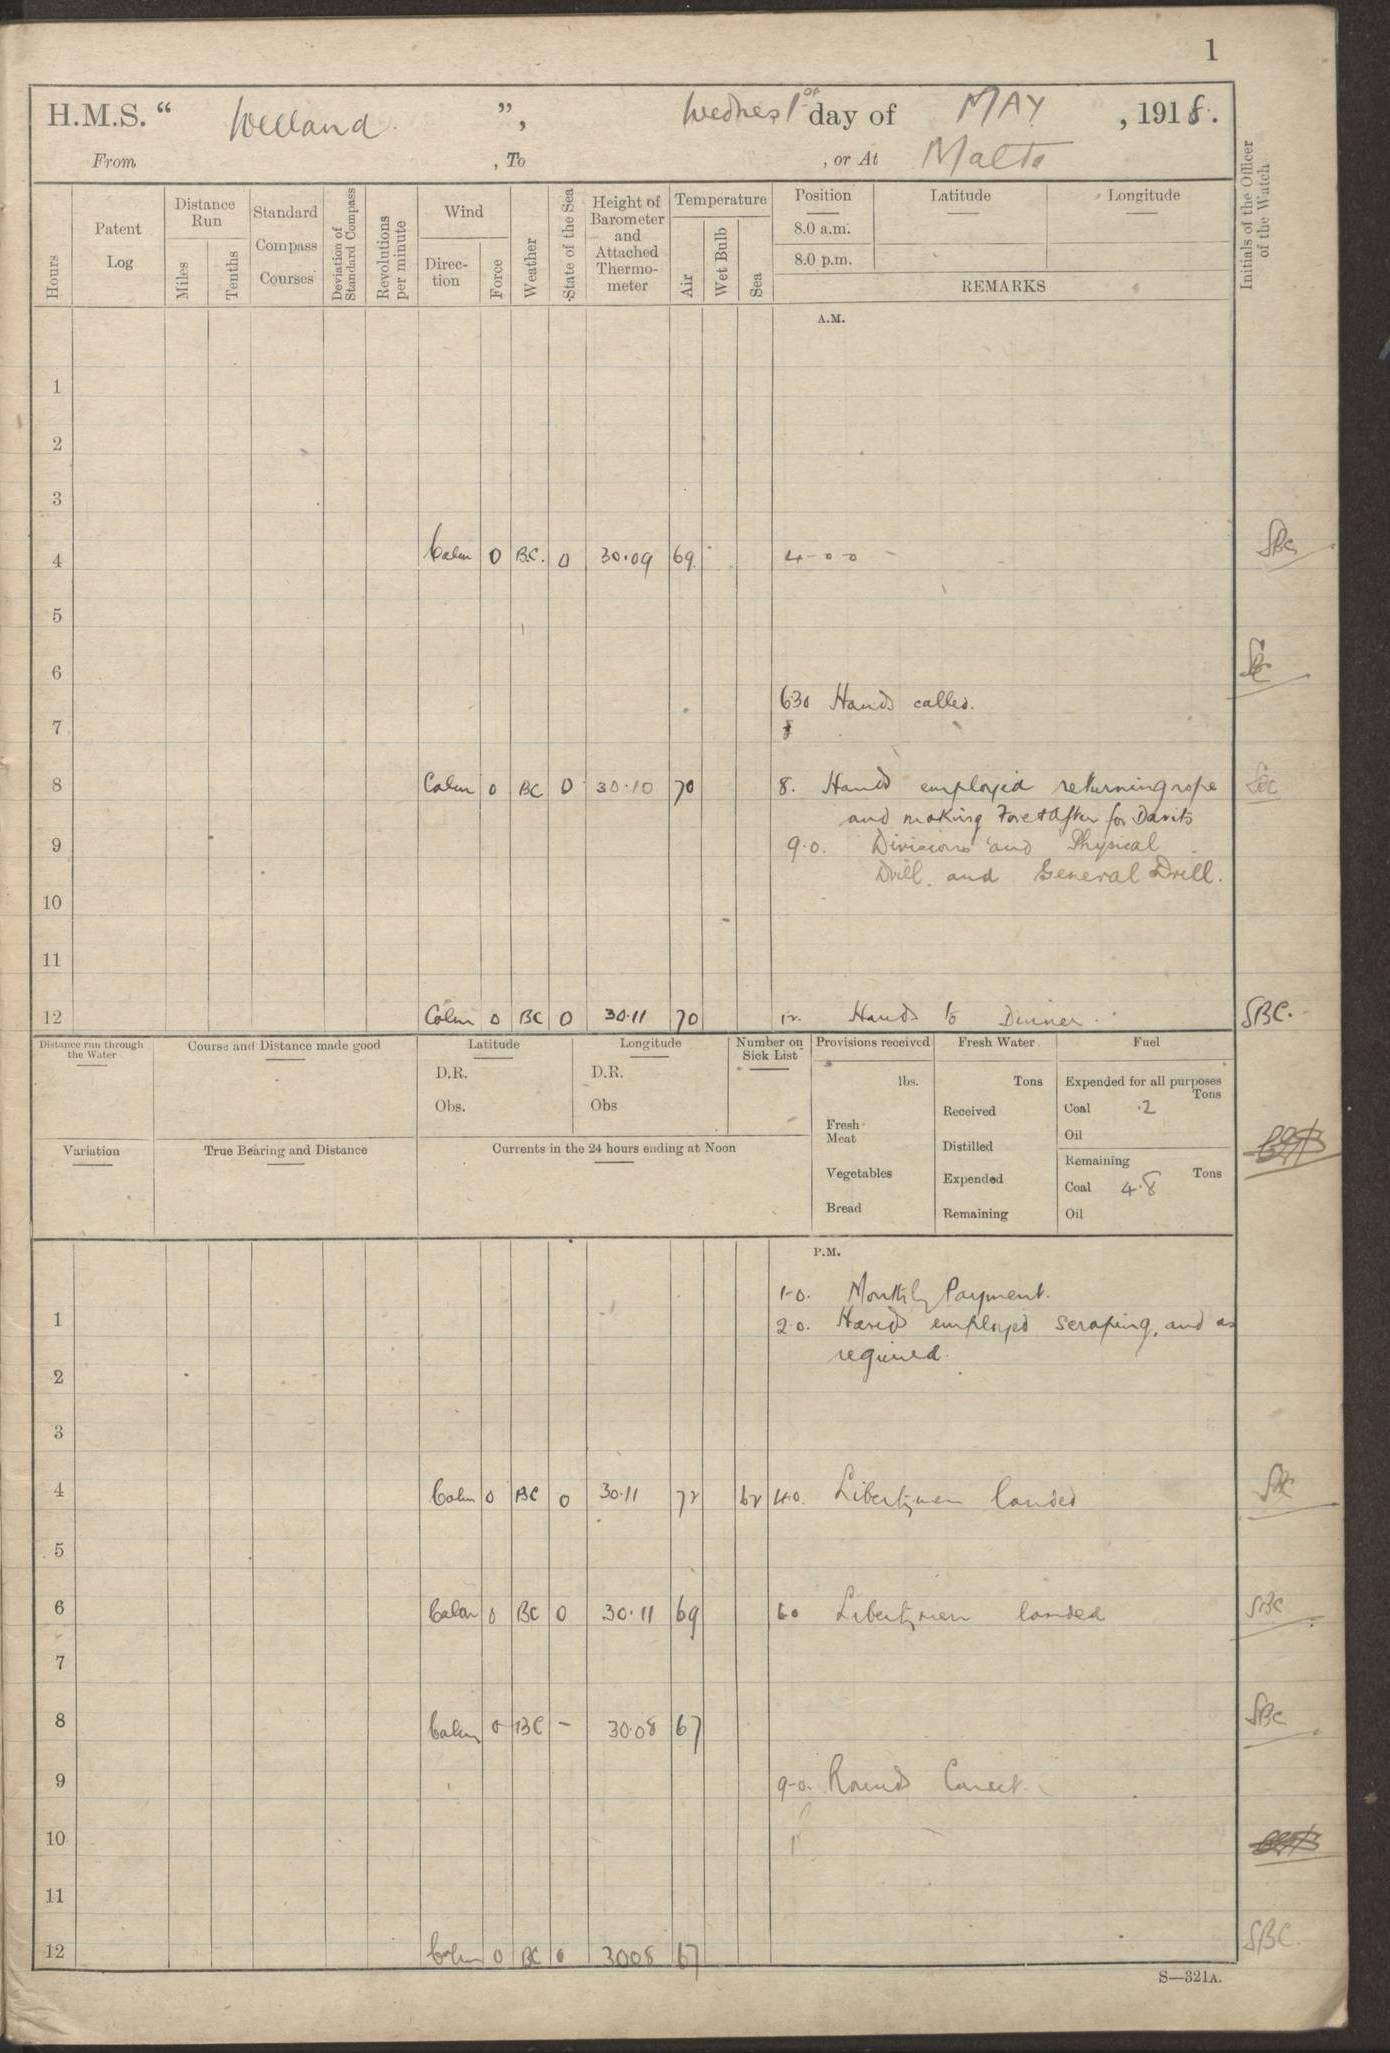 1
H.M.S. “ Welland ”, Wednes 1st day of MAY , 1918.
From , To , or At Malta
Hours
Patent Log
Distance Run
Miles
Tenths
Standard Compass Courses
Deviation of Standard Compass
Revolutions per minute
Wind
Direction
Force
Weather
State of the Sea
Height of Barometer and Attached Thermometer
Temperature
Air
Wet Bulb
Sea
Position Latitude Longitude
8.0 a.m.
8.0 p.m.
REMARKS
Initials of the Officer of the Watch
A.M.
1
2
3
4 Calm 0 B.C. 0 30.09 69 4-0-0 SBC
5
6
630 Hands called.
7
8 Calm 0 BC 0 30.10 70 8. Hands employed returning rope
and making Fore & After for Davits
9 9.0. Divisions and Physical
Drill and General Drill.
10
11
12 Calm 0 BC 0 30.11 70 12. Hands to Dinner. SBC.
Distance run through the Water
Course and Distance made good
Latitude
D.R.
Obs.
Longitude
D.R.
Obs
Number on Sick List
Provisions received
lbs.
Fresh Meat
Vegetables
Bread
Fresh Water
Tons
Received
Distilled
Expended
Remaining
Fuel
Expended for all purposes
Tons
Coal .2
Oil
Remaining
Tons
Coal 4.8
Oil
Variation
True Bearing and Distance
Currents in the 24 hours ending at Noon
P.M.
1-0. Monthly Payment.
1 2.0. Hands employed scraping, and as
required.
2
3
4 Calm 0 BC 0 30.11 72 62 4.0. Libertymen landed SBC
5
6 Calm 0 BC 0 30.11 69 6.0 Libertymen landed SBC
7
8 Calm 0 BC - 30.08 67 SBC
9 9-0. Rounds Correct.
10
11
12 Calm 0 BC 0 3008 67 SBC.
S—321A.